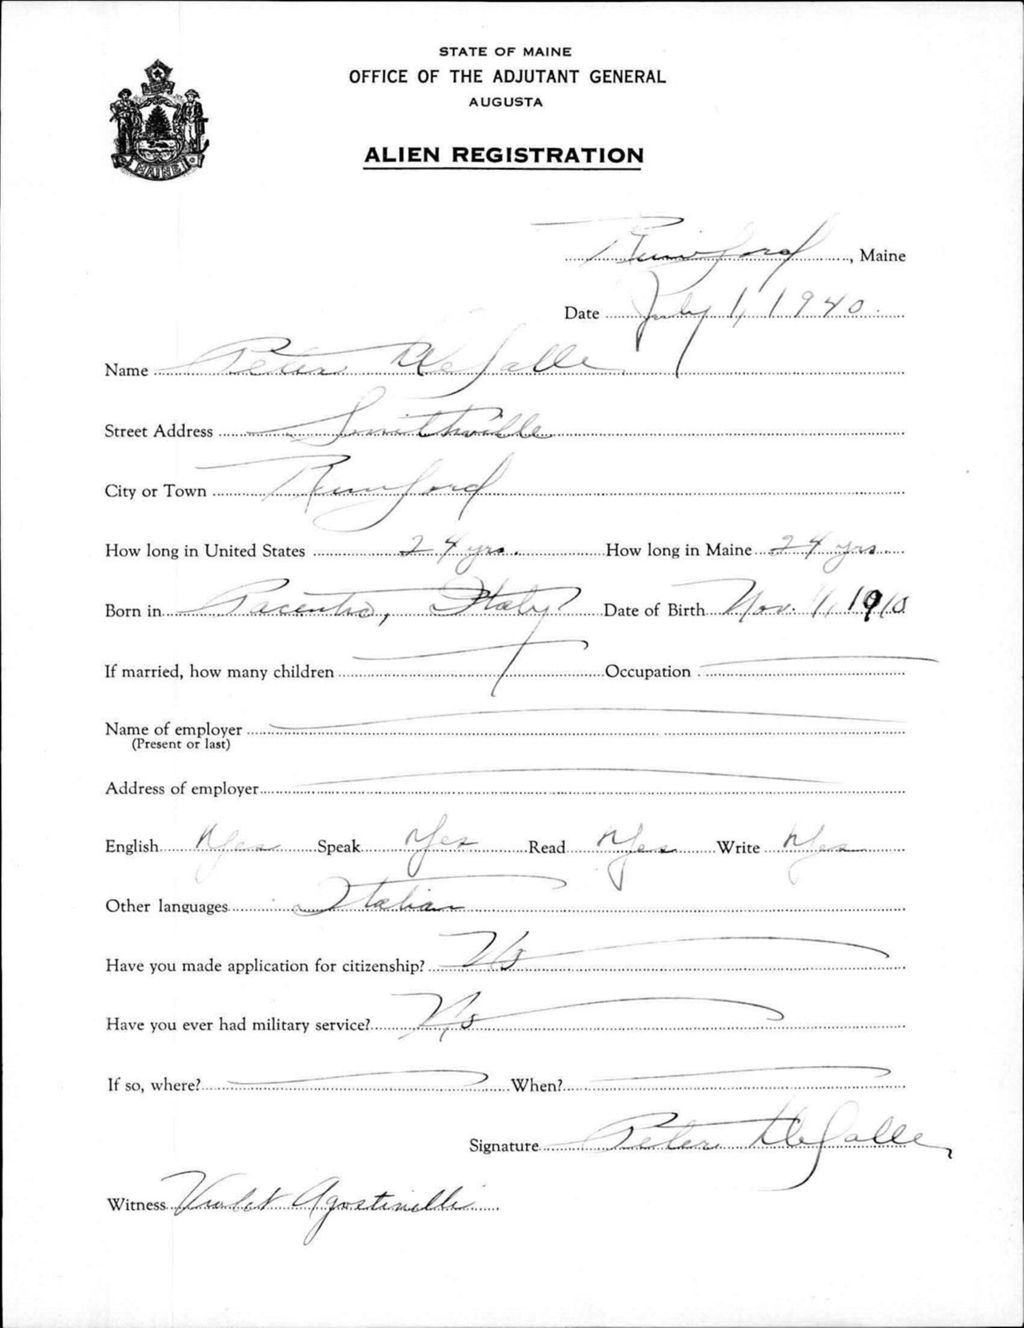 STATE OF MAINE
OFFICE OF THE ADJUTANT GENERAL
AUGUSTA
ALIEN REGISTRATION
MAINE
Rumford, Maine
Date July 1, 1940
Name Peter DeSalle
Street Address Smithville
City or Town Rumford
How long in United States 24 yrs. How long in Maine 24 yrs.
Born in Pacentro, Italy Date of Birth Nov. 1910
If married, how many children Occupation
Name of employer
(Present or last)
Address of employer
English Yes Speak Yes Read Yes Write Yes
Other languages Italian
Have you made application for citizenship? No
Have you ever had military service? No
If so, where? When?
Signature Peter DeSalle
Witness Violet Agostinelli